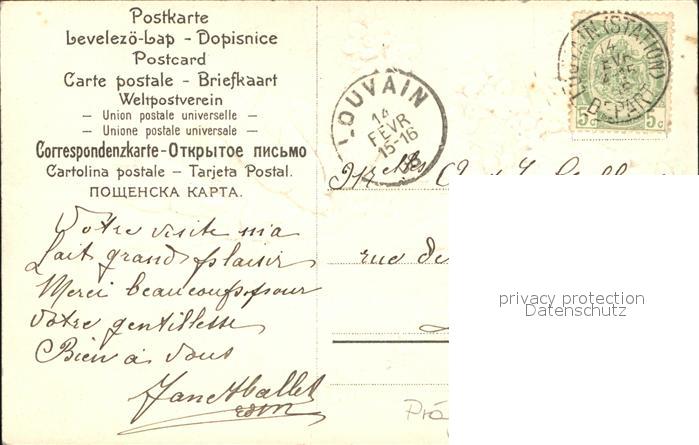 Postkarte
Levelezö-Lap - Dopisnice
Postcard
Carte postale - Briefkaart
Weltpostverein
- Union postale universelle -
- Unione postale universale -
Correspondenzkarte-Открытое письмо
Cartolina postale - Tarjeta Postal.
ПОЩЕНСКА КАРТА.
Votre visite m'a
fait grand plaisir
Merci beaucoup pour
votre gentillesse
Bien à vous
LOUVAIN
14
FEVR
15-16
(STATION)
14
DEPART
5c 5c
rue de
privacy protection
Datenschutz